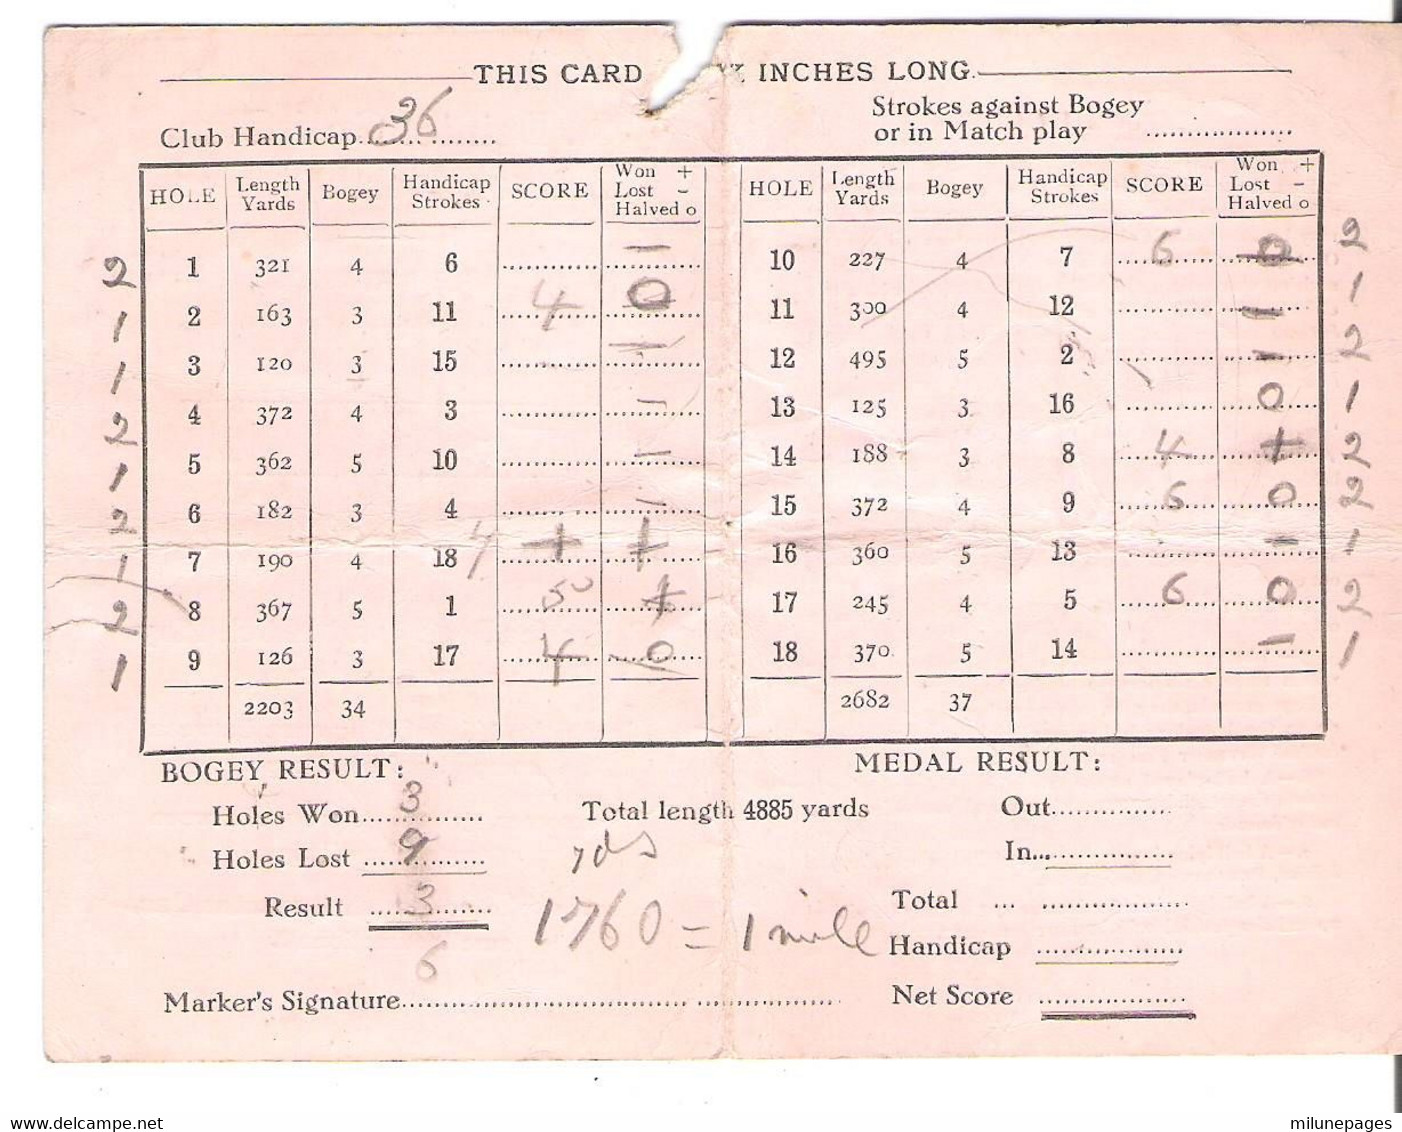 THIS CARD INCHES LONG.
Club Handicap 36
Strokes against Bogey
or in Match play
HOLE Length Yards Bogey Handicap Strokes SCORE Won + Lost - Halved o
2 1 321 4 6 -
1 2 163 3 11 4 0
1 3 120 3 15 -
2 4 372 4 3 -
1 5 362 5 10 -
2 6 182 3 4 -
1 7 190 4 18 4 + +
2 8 367 5 1 5 +
1 9 126 3 17 4 0
2203 34
HOLE Length Yards Bogey Handicap Strokes SCORE Won + Lost - Halved o
10 227 4 7 6 0 2
11 300 4 12 - 1
12 495 5 2 - 2
13 125 3 16 0 1
14 188 3 8 4 + 2
15 372 4 9 6 0 2
16 360 5 13 - 1
17 245 4 5 6 0 2
18 370 5 14 - 1
2682 37
BOGEY RESULT:
Holes Won 3
Holes Lost 9
Result 3
6
Total length 4885 yards
yds
1760 = 1 mile
MEDAL RESULT:
Out
In
Total
Handicap
Net Score
Marker's Signature
www.delcampe.net
milunepages